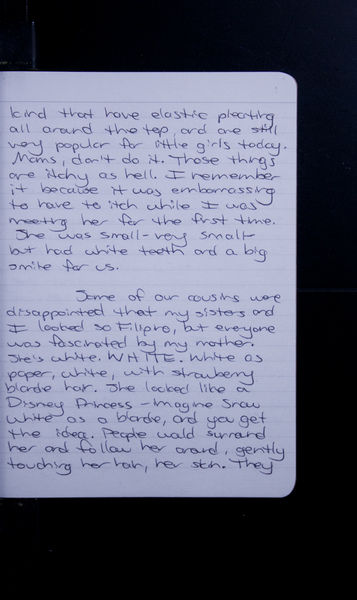 kind that have elastic pleating
all around the top, and are still
very popular for little girls today.
Moms, don't do it. Those things
are itchy as hell. I remember
it because it was embarrassing
to have to itch while I was
meeting her for the first time.
She was small-very small-
but had white teeth and a big
smile for us.
Some of our cousins were
disappointed that my sisters and
I looked so Filipino, but everyone
was fascinated by my mother.
She's white. WHITE. White as
paper, white, with strawberry
blonde hair. She looked like a
Disney Princess - Imagine Snow
White as a blonde, and you get
the idea. People would surround
her and follow her around, gently
touching her hair, her skin. They